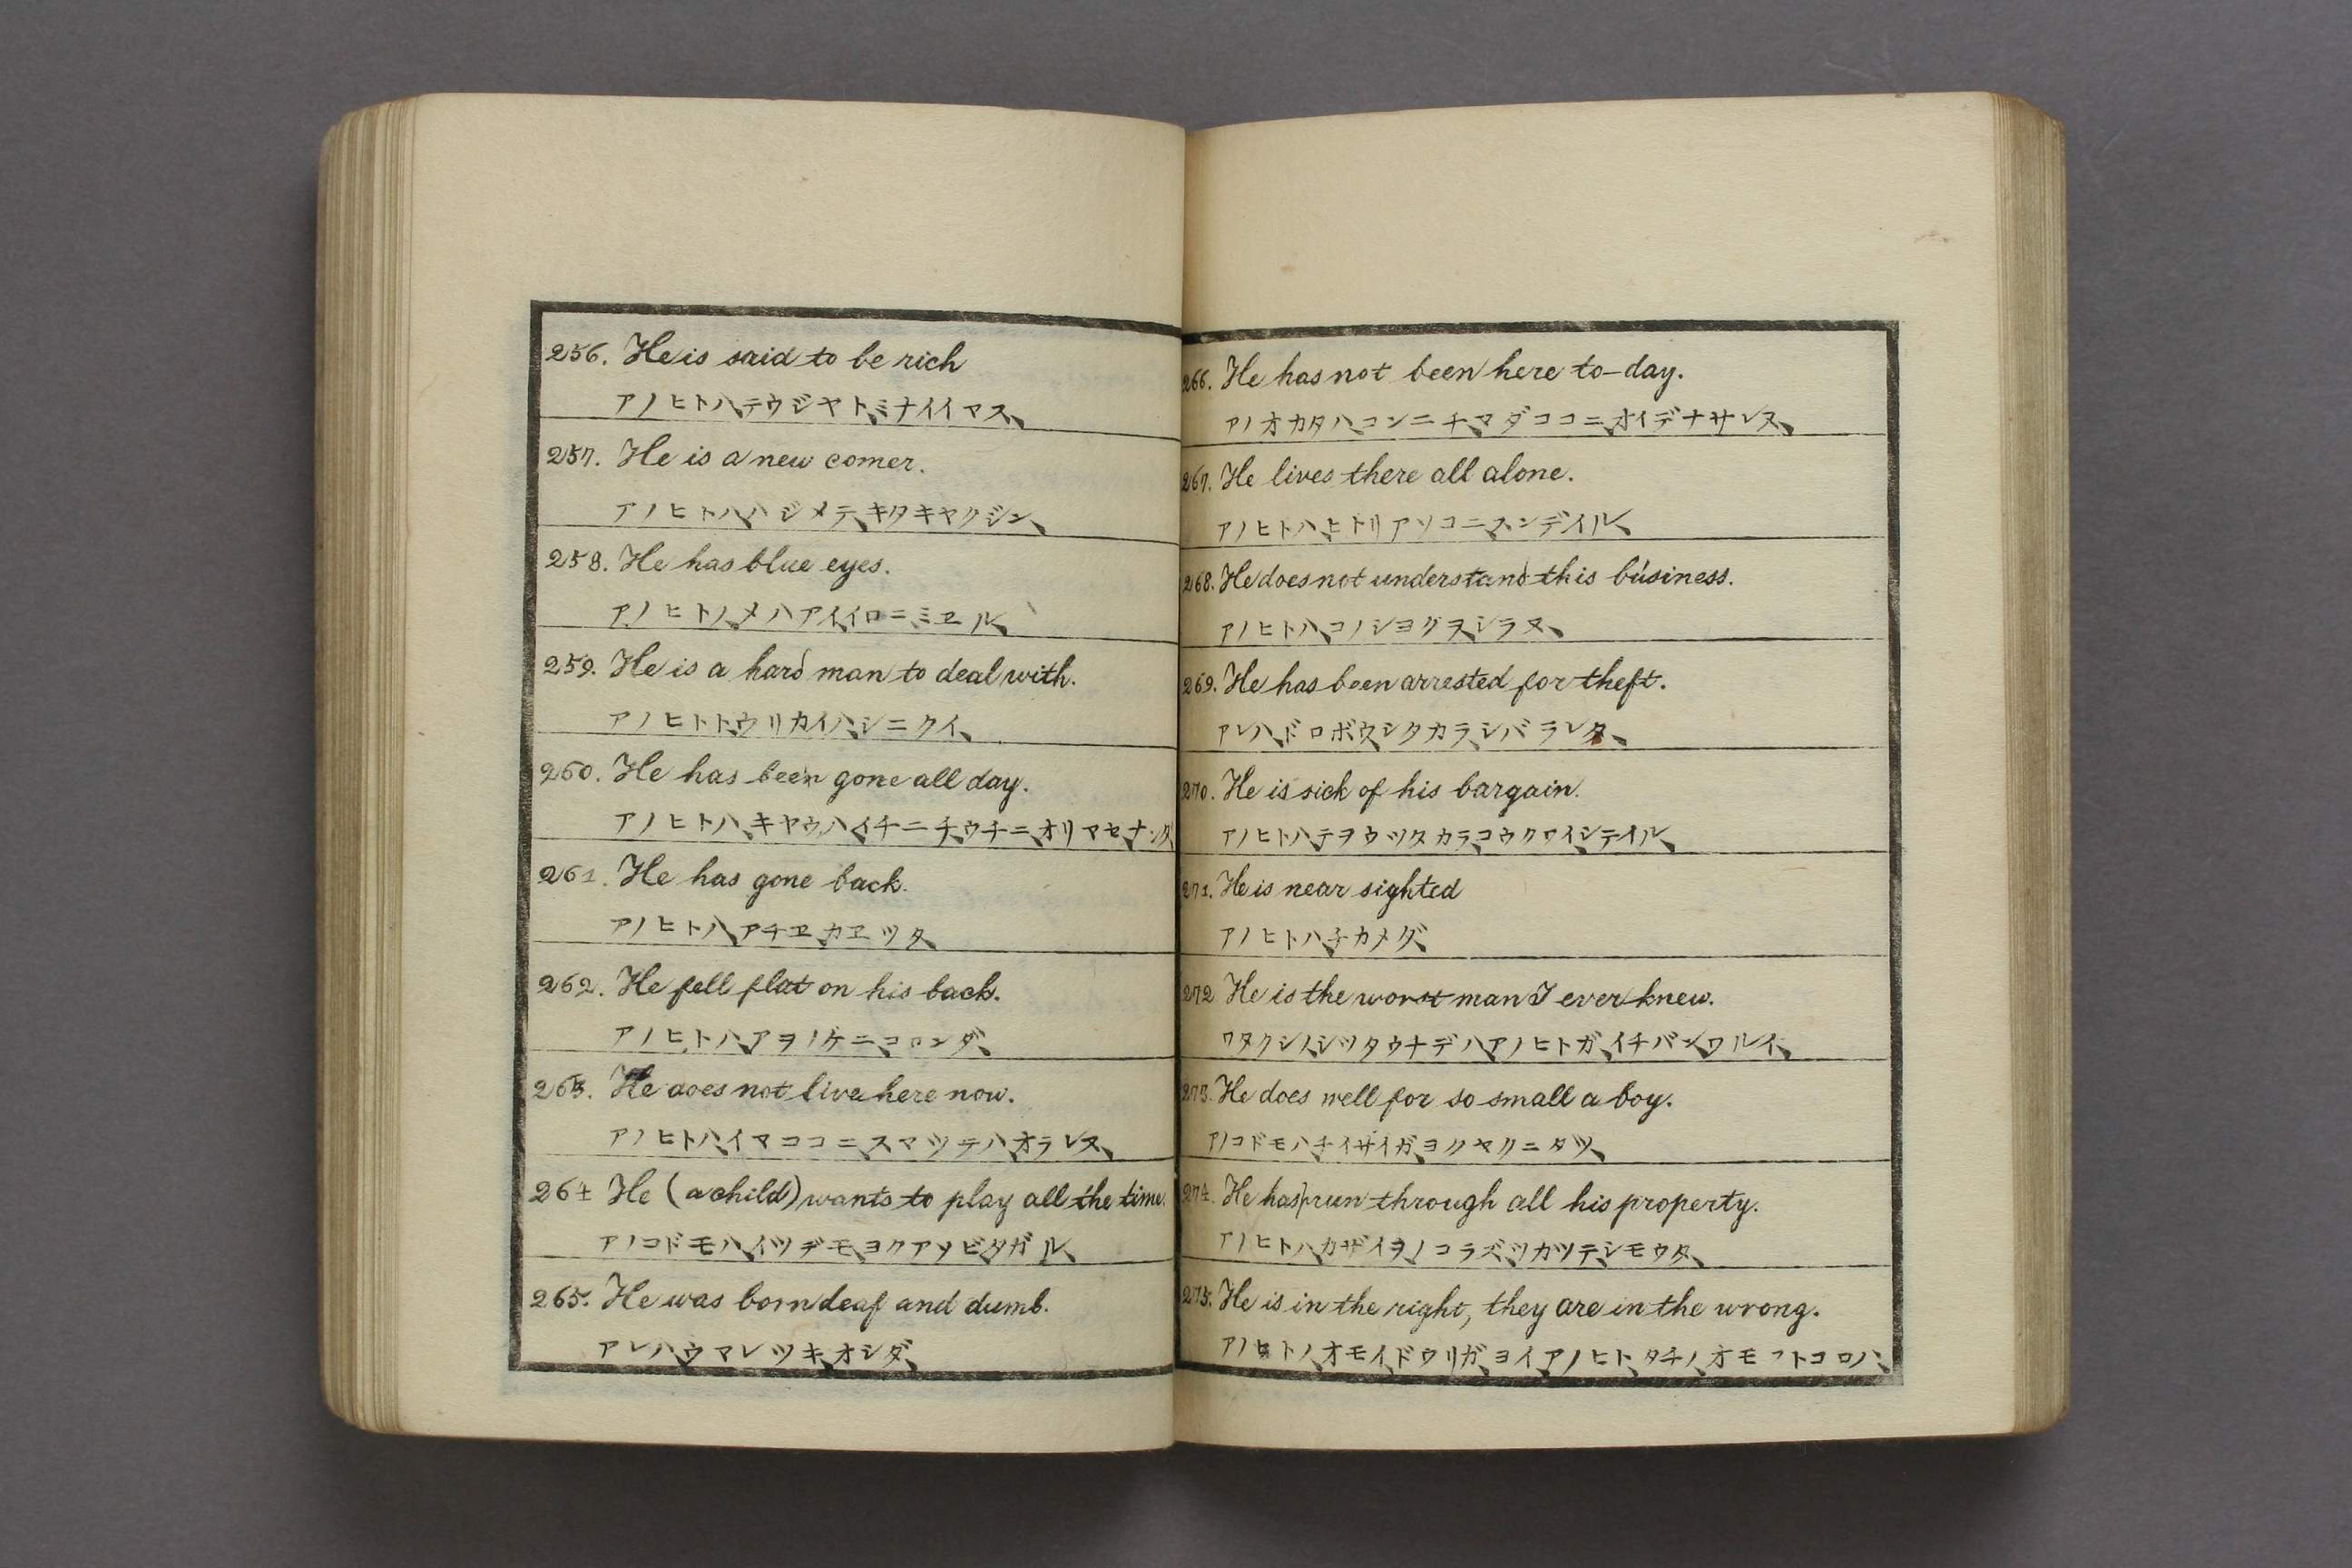 256. He is said to be rich
アノヒトハ、テウジヤト、ミナイイマス、
257. He is a new comer.
アノヒトハ、ハジメテ、キタキヤクジン、
258. He has blue eyes.
アノヒトノ、メハアイ、イロニ、ミヱル、
259. He is a hard man to deal with.
アノヒトト、ウリカイハ、シニクイ、
260. He has been gone all day.
アノヒトハ、キヤウハ、イチニチ、ウチニ、オリマセナンダ
261. He has gone back.
アノヒトハ、アチヱ、カヱツタ、
262. He fell flat on his back.
アノヒトハ、アヲノケニ、コロンダ、
263. He does not live here now.
アノヒトハ、イマココニ、スマツテハ、オラレヌ、
264 He (a child) wants to play all the time.
アノコドモハ、イツデモ、ヨクアソビタガル、
265. He was born deaf and dumb.
アレハ、ウマレツキ、オシダ、
266. He has not been here to-day.
アノオカタハ、コンニチ、マダココニ、オイデナサレヌ、
267. He lives there all alone.
アノヒトハ、ヒトリアソコニ、スンデイル、
268. He does not understand this business.
アノヒトハ、コノシヨグヲ、シラヌ、
269. He has been arrested for theft.
アレハ、ドロボウ、シタカラ、シバラレタ、
270. He is sick of his bargain.
アノヒトハ、テヲウツタカラ、コウクワイ、シテイル、
271. He is near sighted
アノヒトハ、チカメダ、
272 He is the worst man I ever knew.
ワタクシノ、シツタウチデハ、アノヒトガ、イチバン、ワルイ、
273. He does well for so small a boy.
アノコドモハ、チイサイガ、ヨクヤクニタツ、
274. He has run through all his property.
アノヒトハ、カザイヲ、ノコラズ、ツカツテ、シモウタ、
275. He is in the right, they are in the wrong.
アノヒトノ、オモイ、ドウリガ、ヨイ、アノヒト、タチノ、オモフトコロハ、